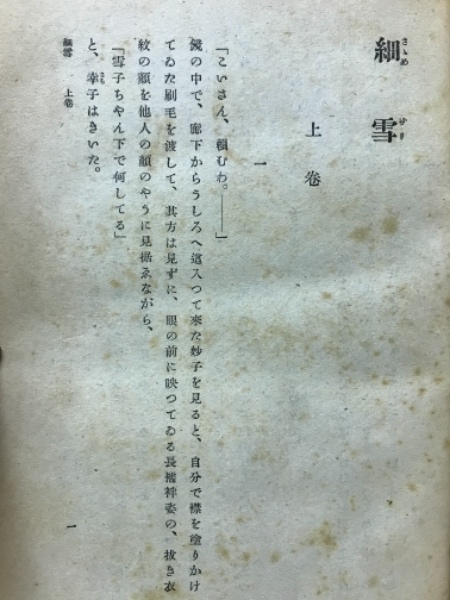 細雪
さゝめゆき
上卷
一
「こいさん、頼むわ。――」
鏡の中で、廊下からうしろへ這入つて來た妙子を見ると、自分で襟を塗りかけ
てゐた刷毛を渡して、其方は見ずに、眼の前に映つてゐる長襦袢姿の、拔き衣
紋の顏を他人の顏のやうに見据ゑながら、
「雪子ちやん下で何してる」
と、幸子はきいた。
細雪 上卷
一